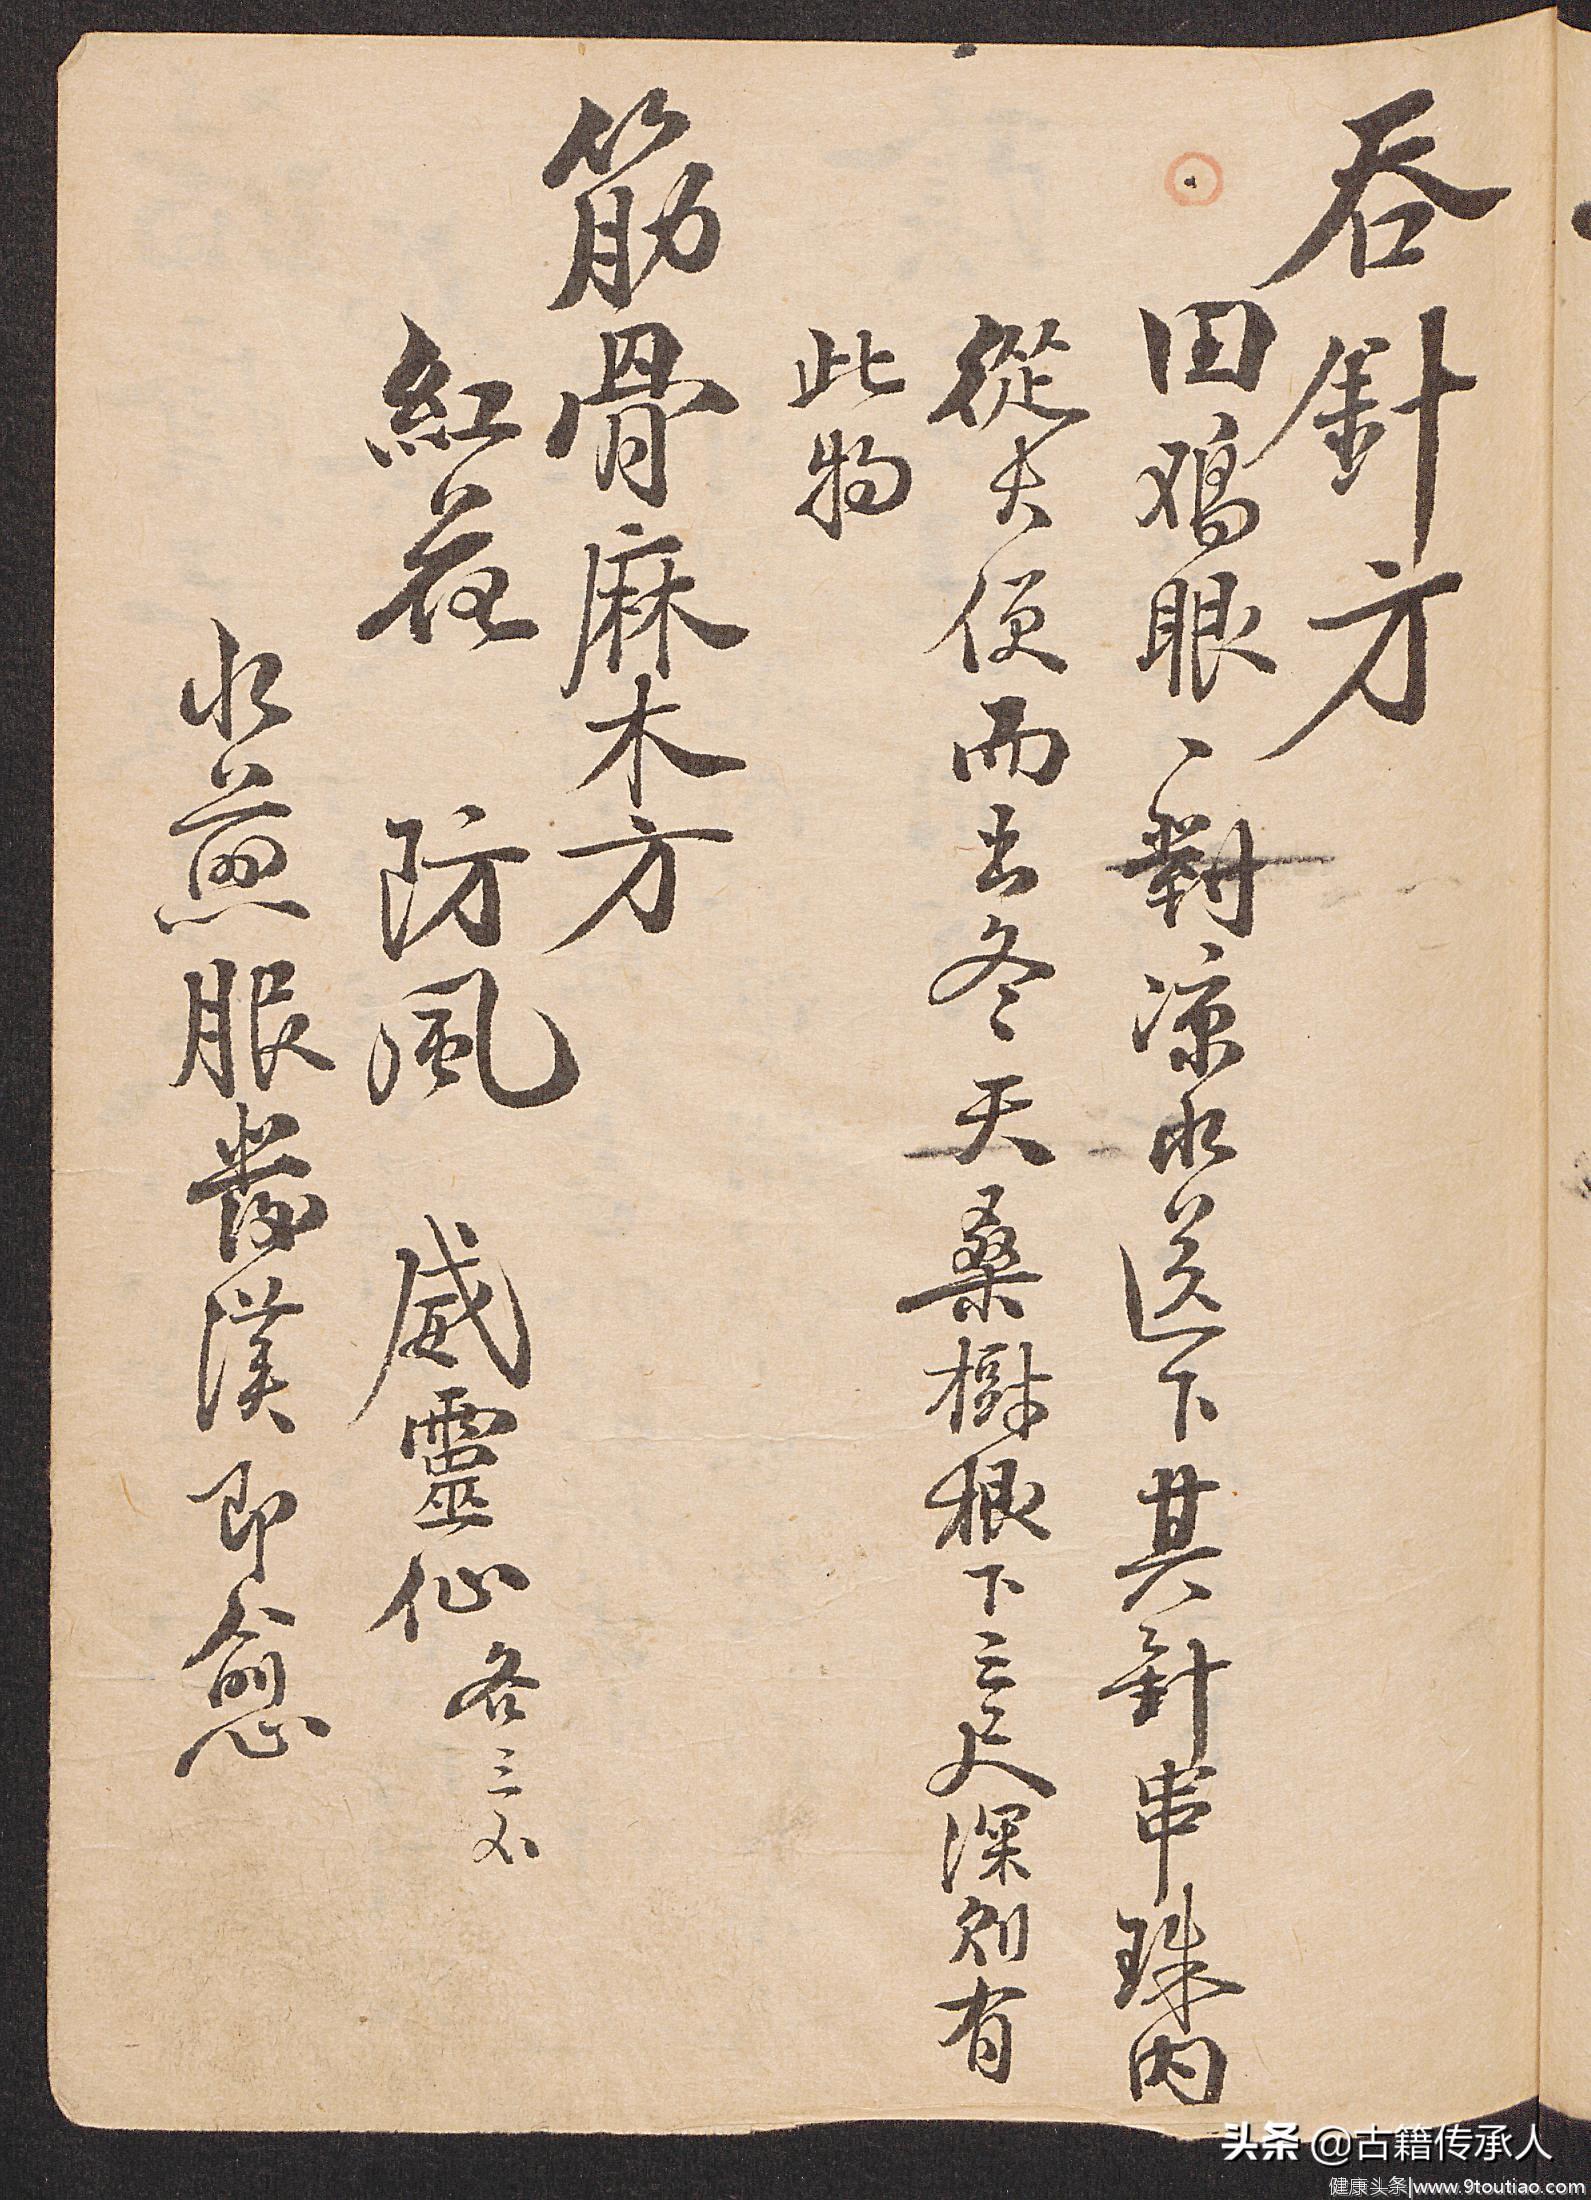 吞針方
田鸡眼一對凉水送下其針串珠内
從大便而出冬天桑樹根下三尺深则有
此物
筋骨麻木方
紅花 防風 威靈仙 各三
水煎服發漢即愈
头条 @古籍传承人
健康头条|www.9toutiao.com